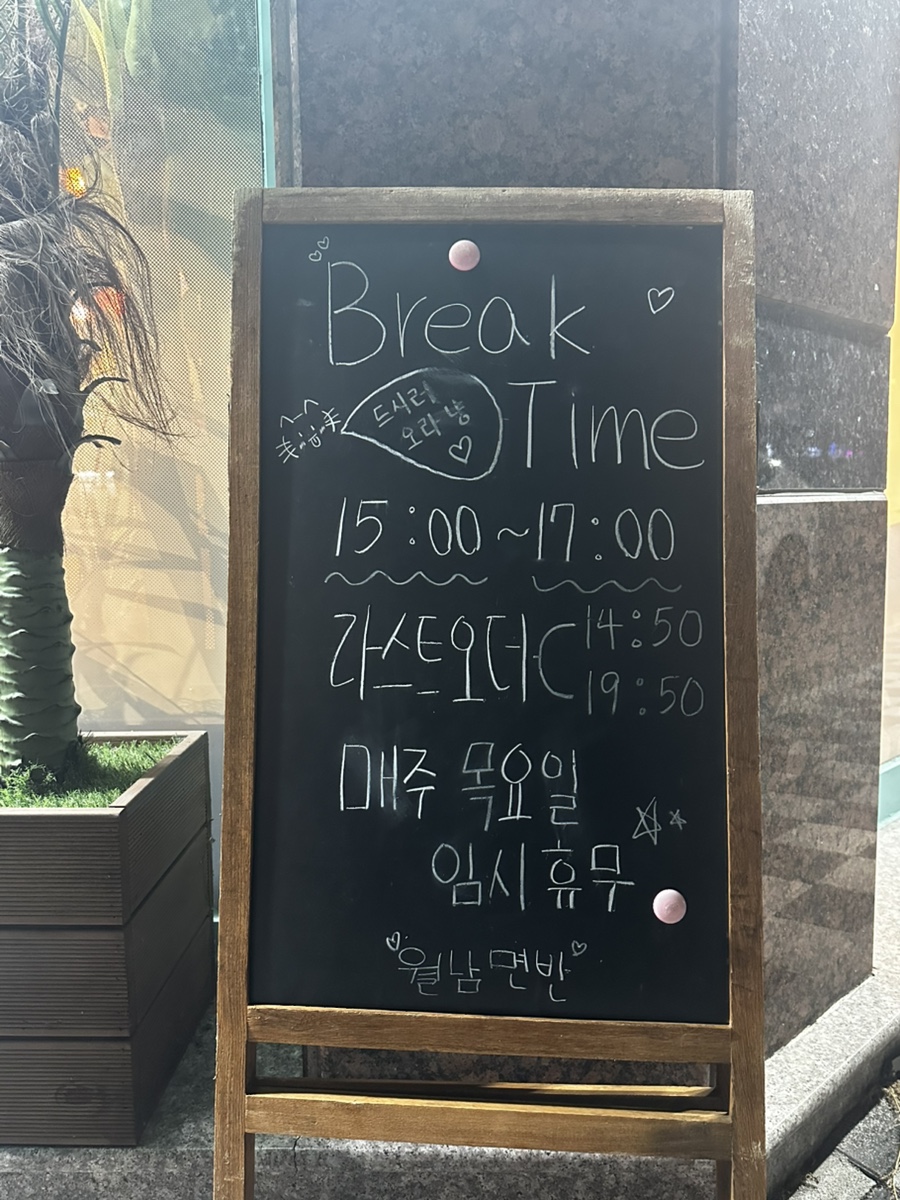 Break
Time
드시러
오라냥
15:00~17:00
라스트오더 14:50
19:50
매주 목요일
임시휴무
월남면반